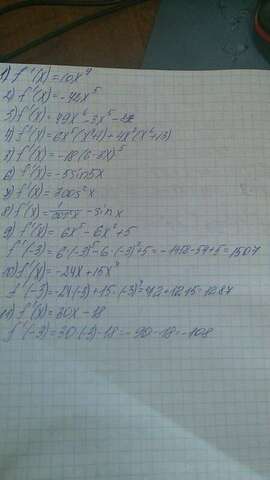 1) f'(x)=10x⁴
2) f'(x)=-42x⁵
3) f'(x)=49x⁶-3x⁵-
4) f'(x)=6x⁵(x⁴-1)+4x³(x⁶+3)
5) f'(x)=-18(6-2x)⁵
6) f'(x)=-5sin5x
8) f'(x)= -sin x
9) f'(x)=6x⁵-6x²+5
f'(-3)=6·(-3)⁵-6·(-3)²+5=-1458-54+5=-1507
10) f'(x)=-24x+15x⁴
f'(-3)=-24·(-3)+15·(-3)⁴=72+1215=1287
11) f'(x)=30x-18
f'(-3)=30·(-3)-18=-90-18=-108